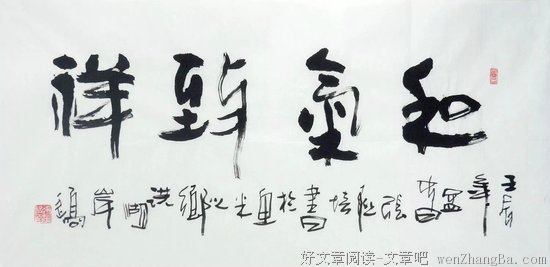 和氣致祥
壬辰年 張 培書於魚米之鄉洪湖岸
好文章阅读-文章吧 wenZhangBa.com